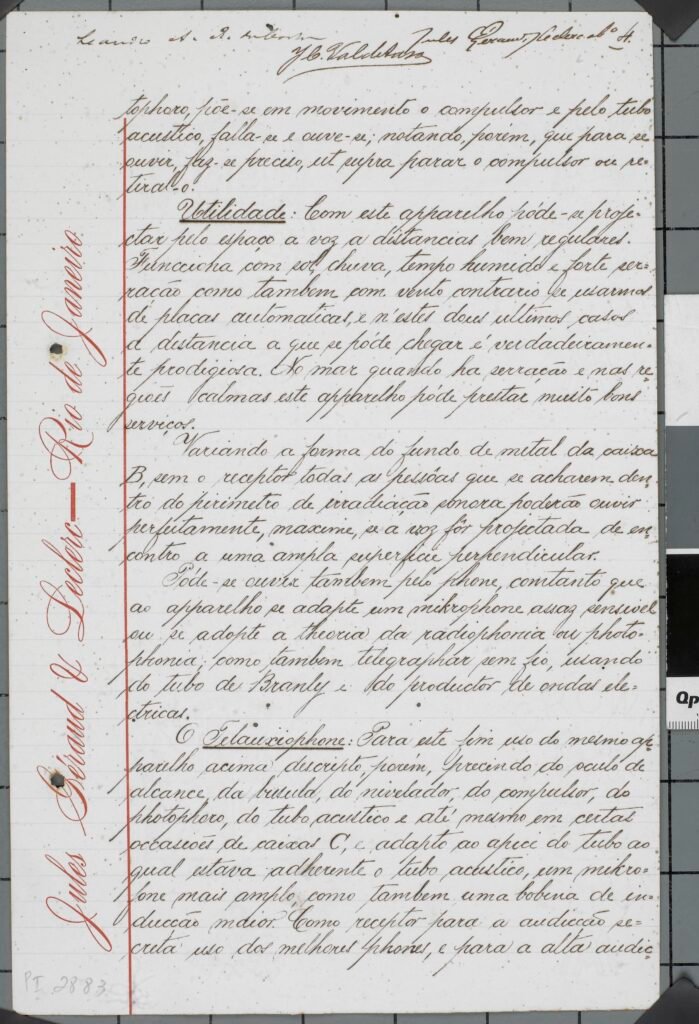 Jules Geraud, Leclerc & Cº 4.
tophoro, põe-se em movimento o compulsor e pelo tubo
acustico, falla-se e ouve-se; notando, porém, que para se
ouvir, faz-se preciso, ut supra parar o compulsor ou re-
tiral-o.
Utilidade: Com este apparelho póde-se proje-
ctar pelo espaço a voz a distancias bem regulares.
Funcciona com sol, chuva, tempo humido e forte ser-
ração como tambem com vento contrario se usarmos
de placas automaticas, e n'estes dous ultimos casos
a distancia a que se póde chegar é verdadeiramen-
te prodigiosa. No mar quando ha serração e nas re-
giões calmas este apparelho póde prestar muito bons
serviços.
Variando a forma do fundo de metal da caixa
B, sem o receptor todas as pessôas que se acharem den-
tro do perimetro de irradiação sonora poderão ouvir
perfeitamente, maxime, se a voz fôr projectada de en-
contro a uma ampla superficie perpendicular.
Póde-se ouvir tambem pelo phone, comtanto que
ao apparelho se adapte um mikrophone assaz sensivel
ou se adopte a theoria da radiophonia ou photo-
phonia; como tambem telegraphar sem fio, usando
do tubo de Branly e do productor de ondas ele-
ctricas.
O Telauxiophone: Para este fim uso do mesmo ap-
parelho acima descripto, porem, precindo do oculo de
alcance, da busula, do nivelador, do compulsor, do
photophoro, do tubo acustico e até mesmo em certas
occasiões de caixas C, e adapto ao apice do tubo ao
qual estava adherente o tubo acustico, um mikro-
fone mais amplo como tambem uma bobina de in-
ducção maior. Como receptor para a audicção se-
creta uso dos melhores phones, e para a alta audic-
Jules Géraud & Leclerc — Rio de Janeiro
PI 2883
Qp